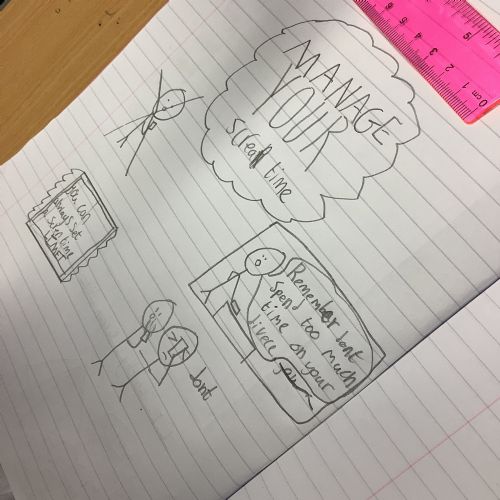 MANAGE
YOUR
screen time
you can
always set
time
Remember dont
spend too much
time on your
divece
dont
0cm 1 2 3 4 5 6